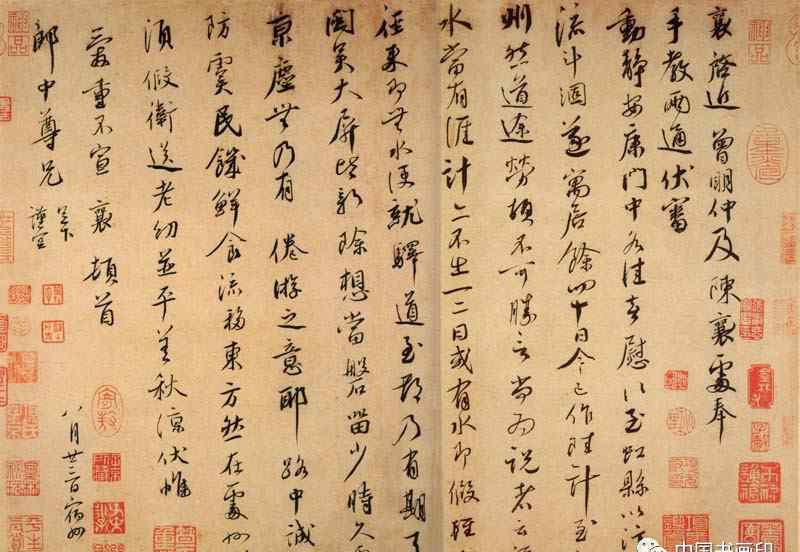 襄啓近曾明仲及陳襄處奉
手教兩通伏審
動靜安康門中各佳喜慰以至虹縣以汴
流斗涸遂寓居餘四十日今已作陸計至
州然道途勞頓不可勝言尚為說者云
水當有涯計亦不出一二日或有水即假輕
徑來即無水便就驛道至都乃有期耳
閩吳大屏皆新除想當磐留少時久
京塵無乃有倦游之意耶路中誠
防虞民饑鮮食流移東方然在處州
須假衛送老幼並平善秋涼伏惟
愛重不宣襄頓首
郎中尊兄
座下
謹空
八月廿三日宿州
中国书画印